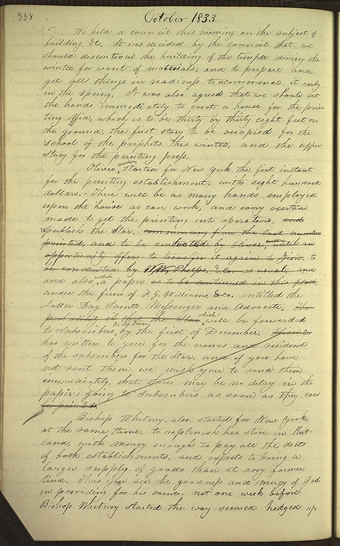 358 October 1833
"We held a council this morning on the subject of
building, &c. It was decided by the council that we
should discontinue the building of the temple during the
winter for want of materials; and to prepare and
get all things in readiness to commence it early
in the spring. It was also agreed that we should set
the hands immediately to erect a house for the prin
ting office, which is to be thirty by thirty eight feet on
the ground; the first story to be occupied for the
school of the prophets this winter, and the upper
story for the printing press.
Oliver started for New York the first instant
for the printing establishment, with eight hundred
dollars. There will be as many hands employed
upon the house as can work, and every exertion
made to get the printing into operation, and
publish the Star, commencing from the last number
printed, and to be conducted by Oliver, until an
opportunity offers to transfer it again to Zion, to
be conducted by W. W. Phelps, & Co. as usual; and
and also, a paper is to be continued in this place
under the firm of F. G. Williams, & Co. entitled the
Latter Day Saints Messenger and Advocate, the
which will be forwarded
to subscribers, by the first of December.
has written to you for the names and residence
of the subscribers for the Star, and if you have
not sent them, we wish you to send them
immediately, that there may be no delay in the
papers going to subscribers as soon as they can
be printed.
Bishop Whitney, also, started for New York
at the same time, to replenish his store in Kirt-
land, with money enough to pay all the debts
of both establishments, and expects to bring a
larger supply of goods than at any former
time. Thus you see the goodness and mercy of God
in providing for his saints; not one week before
Bishop Whitney started the way seemed hedged up